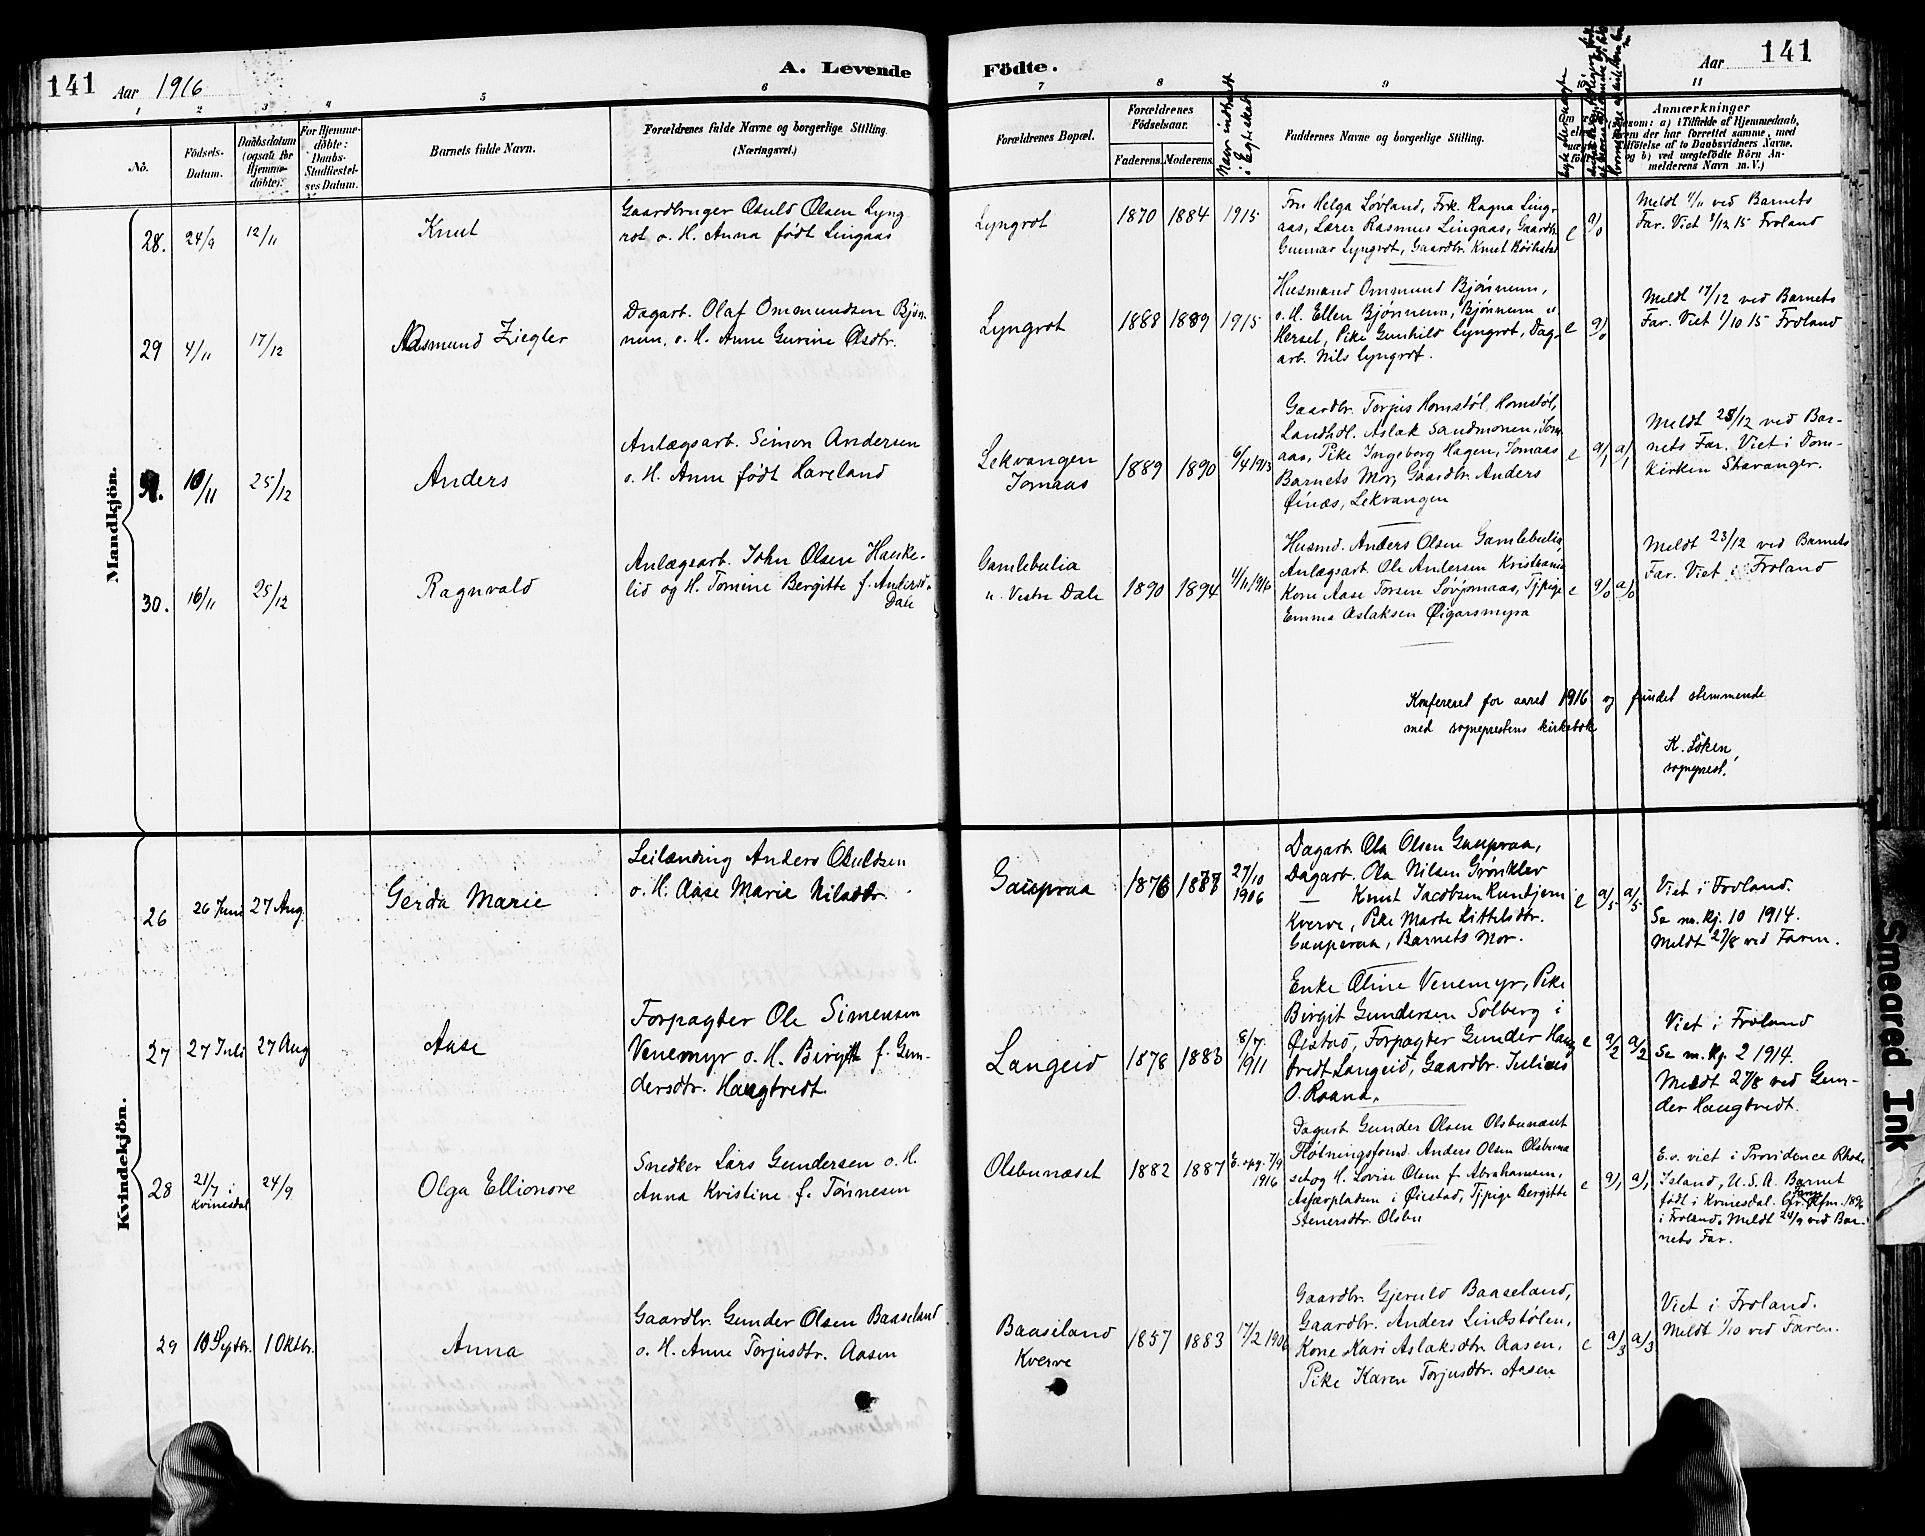 141
Aar 1916
A. Levende
Födte.
Aar
141
1
2
3
4
5
6
7
8
9
11
No.
Födsels-
Datum.
Daabsdatum
(ogsaa for
Hjemme-
döbte).
For Hjemme-
döbte:
Daabs-
Stadfæstel-
ses Datum.
Barnets fulde Navn.
Forældrenes fulde Navne og borgerlige Stilling.
(Næringsvei.)
Forældrenes Bopæl.
Forældrenes
Födselsaar.
Faderens.
Moderens.
Naar indtraadt
i Egteskab
Faddernes Navne og borgerlige Stilling.
Anmærkninger
(saasom: a) i Tilfælde af Hjemmedaab,
hvem der har forrettet samme, med
Tilföielse af to Daabsvidners Navne.
og b) ved uægtefödte Börn An-
melderens Navn m. V.)
Mandkjön.
28.
24/9
12/11
Knut
Gaardbruger Osuld Olsen Lyng
rot o. H. Anna født Lingaas
Lyngrot
1870
1884
1915
Fru Helga Løvland, Frk. Ragna Ling-
aas, Lærer Rasmus Lingaas, Gaardbr.
Gunnar Lyngrot, Gaardbr. Knut
e
a/0
Meldt 4/11 ved Barnets
Far. Viet 3/12 15 Froland
29
4/11
17/12
Aasmund Ziegler
Dagarb. Olaf Ommundsen Bjøn-
num, o. H. Anne Gurine Osdtr.
Lyngrot
1888
1889
1915
Husmand Ommund Bjønnum,
o. H. Ellen Bjønnum, Bjønnum u.
Hersel, Pike Gunhild Lyngrot, Dag-
arb. Nils Lyngrot.
e
a/0
Meldt 17/12 ved Barnets
Far. Viet 1/10 15 Froland
10/11
25/12
Anders
Anlægsarb. Simon Andersen
o. H. Anne født Haveland
Lekvangen
Jomaas
1889
1890
6/4 1913
Gaardbr. Torjus Homstøl, Homstøl,
Landhdl. Aslak Sandmoen, Jom-
aas, Pike Ingeborg Hagen, Jomaas
Barnets Mor, Gaardbr. Anders
Øinæs, Lekvangen
e
a/1
a/1
Meldt 25/12 ved Bar-
nets Far. Viet i Dom-
kirken Stavanger.
30.
16/11
25/12
Ragnvald
Anlægsarb. John Olsen Hauke-
lid og H. Tomine Bergitte f. Andersd.
Dale
Gamlebulia
u. Vestre Dale
1890
1894
4/11 1916
Husmd. Anders Olsen Gamlebulia,
Anlægsarb. Ole Andersen Kristiania
Kone Aase Torsen Løvjomaas, Tjpige
Emma Aslaksen Øigarsmyra
e
a/0
a/0
Meldt 23/12 ved Barnets
Far. Viet i Froland
Konfereret for aaret 1916 og fundet stemmende
med sogneprestens kirkebok
K. Löken,
sogneprest.
Kvindekjön.
26
26 Juni
27 Aug.
Gerda Marie
Leilænding Anders Osuldsen
o. H. Aase Marie Nilsdtr.
Gaupraa
1876
1887
27/10
1906
Dagarb. Ola Olsen Gaupraa,
Dagarb. Ola Nilsen Grønklev
— Knut Jacobsen
Kverve, Pike Marte Kittelsdtr.
Gauperaa, Barnets Mor.
e
a/5
a/5
Viet i Froland.
Se m. kj. 10 1914.
Meldt 27/8 ved Faren.
27
27 Juli
27 Aug
Aase
Forpagter Ole Simensen
Venemyr o. H. Birgit f. Gun-
dersdtr. Haugtvedt
Langeid
1878
1883
8/7
1911
Enke Oline Venemyr, Pike
Birgit Gundersen Solberg i
Øistad, Forpagter Gunder Haug
tvedt Langeid, Gaardbr. Julius
O. Raana.
e
a/2
a/2
Viet i Froland
Se m. kj. 2 1914.
Meldt 27/8 ved Gun-
der Haugtvedt.
28
21/7 i
Kvinesdal
24/9
Olga Ellionore
Snedker Lars Gundersen o. H.
Anna Kristine f. Tønnesen
Olsbunæset
1882
1887
E. opg. 7/9
1916
Dagarb. Gunder Olsen Olsbunæset
Fløtningsformd. Anders Olsen Olsbunæ
set og H. Lovise Olsen f. Abrahamsen,
Asperpladsen i Øiestad, Tjpige Bergitte
Stenersdtr. Olsbu
e
a/1
a/1
E.o. viet i Providence Rhode
Island, U.S.A. Barnet
født i Kvinesdal. Cfr. Faren Kfm. 1896
i Froland. Meldt 24/9 ved Bar-
nets Far.
29
10 Septbr.
1 Oktbr.
Anna
Gaardbr. Gunder Olsen Baaseland
o. H. Anne Torjusdtr. Aasen
Baaseland
Kverve
1857
1883
17/2 1906
Gaardbr. Gjeruld Baaseland,
Gaardbr. Anders Lindstølen,
Kone Kari Aslaksdtr. Aasen,
Pike Karen Torjusdtr. Aasen
e
a/3
a/3
Viet i Froland.
Meldt 1/10 ved Faren.
Smeared Ink